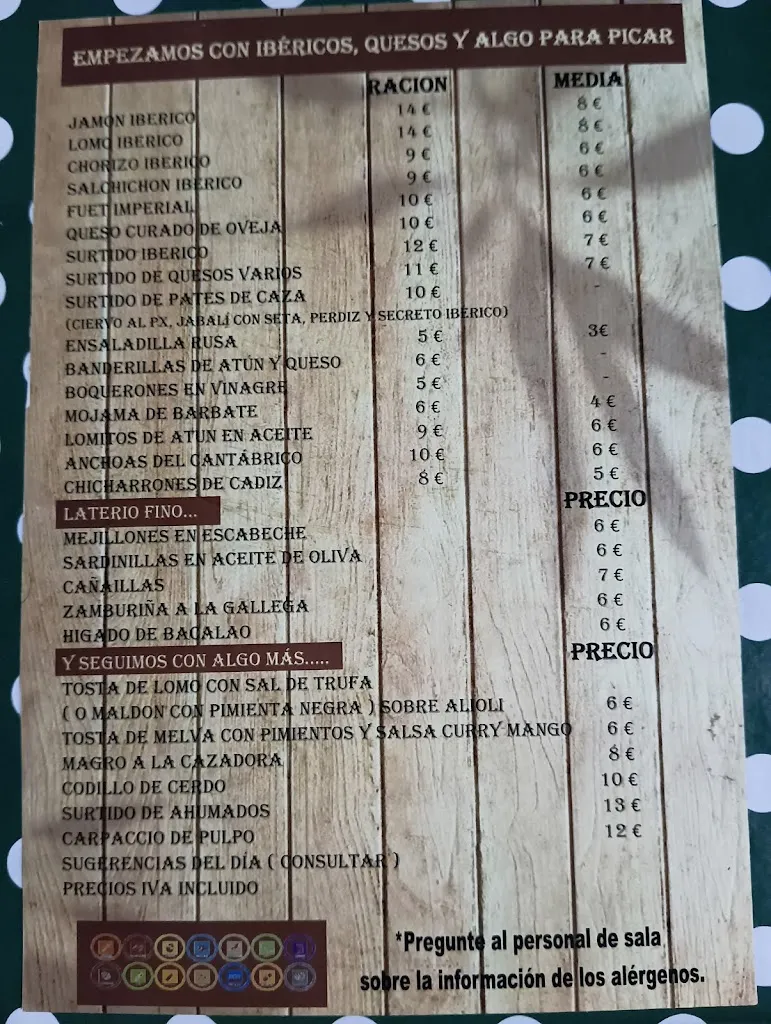 EMPEZAMOS CON IBÉRICOS, QUESOS Y ALGO PARA PICAR
RACION MEDIA
JAMON IBERICO 14 € 8 €
LOMO IBERICO 14 € 8 €
CHORIZO IBERICO 9 € 6 €
SALCHICHON IBERICO 9 € 6 €
FUET IMPERIAL 10 € 6 €
QUESO CURADO DE OVEJA 10 € 6 €
SURTIDO IBERICO 12 € 7 €
SURTIDO DE QUESOS VARIOS 11 € 7 €
SURTIDO DE PATES DE CAZA 10 € -
(CIERVO AL PX, JABALÍ CON SETA, PERDIZ Y SECRETO IBÉRICO)
ENSALADILLA RUSA 5 € 3€
BANDERILLAS DE ATÚN Y QUESO 6 € -
BOQUERONES EN VINAGRE 5 € -
MOJAMA DE BARBATE 6 € 4 €
LOMITOS DE ATUN EN ACEITE 9 € 6 €
ANCHOAS DEL CANTÁBRICO 10 € 6 €
CHICHARRONES DE CADIZ 8 € 5 €
LATERIO FINO... PRECIO
MEJILLONES EN ESCABECHE 6 €
SARDINILLAS EN ACEITE DE OLIVA 6 €
CAÑAILLAS 7 €
ZAMBURIÑA A LA GALLEGA 6 €
HIGADO DE BACALAO 6 €
Y SEGUIMOS CON ALGO MÁS..... PRECIO
TOSTA DE LOMO CON SAL DE TRUFA
( O MALDON CON PIMIENTA NEGRA ) SOBRE ALIOLI 6 €
TOSTA DE MELVA CON PIMIENTOS Y SALSA CURRY MANGO 6 €
MAGRO A LA CAZADORA 8 €
CODILLO DE CERDO 10 €
SURTIDO DE AHUMADOS 13 €
CARPACCIO DE PULPO 12 €
SUGERENCIAS DEL DÍA ( CONSULTAR )
PRECIOS IVA INCLUIDO
*Pregunte al personal de sala
sobre la información de los alérgenos.